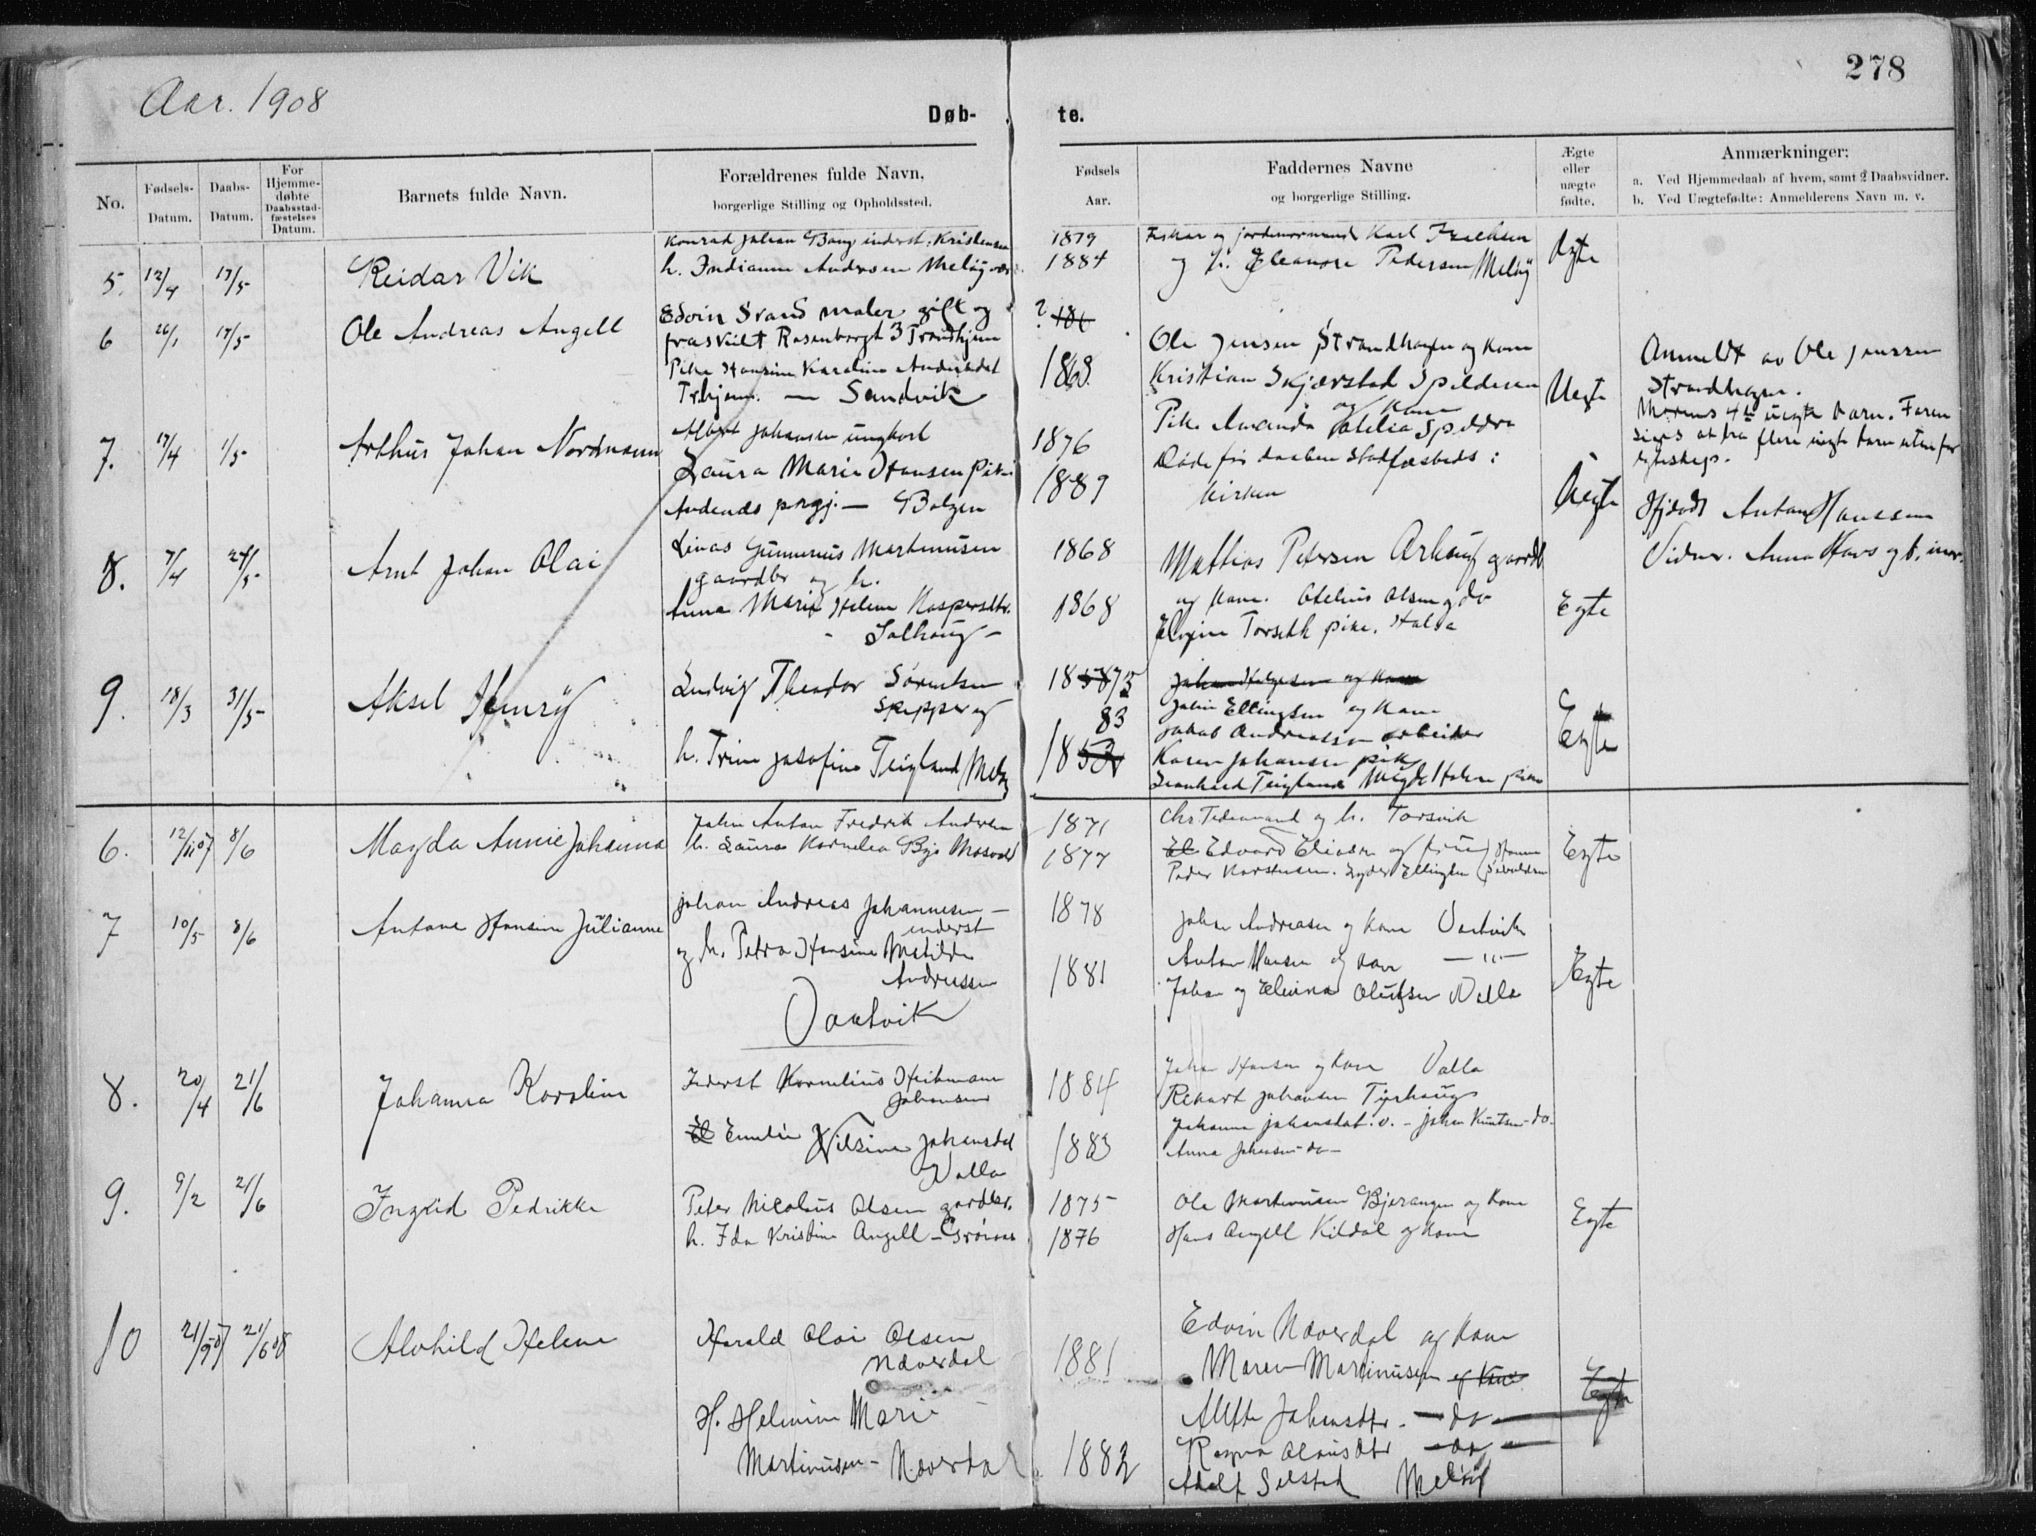 Aar. 1908
278
Døb- te.
No.
Fødsels-Datum.
Daabs-Datum.
For Hjemme-døbte Daabsstad-fæstelses Datum.
Barnets fulde Navn.
Forældrenes fulde Navn,
borgerlige Stilling og Opholdssted.
Fødsels Aar.
Faddernes Navne
og borgerlige Stilling.
Ægte eller uægte fødte.
Anmærkninger:
a. Ved Hjemmedaab af hvem, samt 2 Daabsvidner.
b. Ved Uægtefødte: Anmelderens Navn m. v.
5. 12/4 17/5 Reidar Vik
Konrad Johan Bang inderst. Kristensen
h. Indianna Andersen Meløyvær
1879
1884
Fisker og jordmormand Karl
og h. Eleanore Pedersen Meløy
Ægte
6 26/1 17/5 Ole Andreas Angell
Edvin Svand maler gift og
fraskilt Rosenborgt 3 Trondhjem
Pike Hansine Karoline
Trhjem. — Sandvik
? 186
1868
Ole Jensen Strandhagen og kone
Kristian Skjærstad Spilderen
og kone
Pike Amanda Spildra
Uegte
Anmeldt av Ole Jenssen
Strandhagen.
Morens 4de uegte barn. Faren
siges at ha flere uegte barn uten for
egteskap.
7. 17/4 1/5 Arthur Johan Nordmann
Albert Johansen ungkarl
Laura Marie Hansen pike
Andenæs prgj. — Bolgen
1876
1889
Døde før daaben stadfæsteds i
kirken
Uegte
Hjdøbt Anton Hanssen
Vidner. Anna Havs og b. mor.
8. 7/4 24/5 Arnt Johan Olai
Linas Gunnerius Martinusen
gaardbr og h.
Anna Marie Helene Kaspersdtr.
- Solhaug -
1868
1868
Mathias Petersen Arhaug gaardb
og kone. Otelius Olsen og do
Torseth pike. Halsa
Egte
9. 18/3 31/5 Aksel Henry
Ludvig Theodor Sørensen
Skipper og
h. Trine Josefine Teigland Meløy
185873
83
1853
Johan Helgesen og kone
John Ellingsen og kone
Jakob Andreassen arbeider
Karen Johansen pike
Leonhard Teigland Holm pike
Egte
6. 12/11 07 8/6 Magda Annie Johanna
John Anton Fredrik Andersen
h. Laura Kornelia Bye Mosvold
1871
1877
Chr Tedemand og h. Torsvik
El Edvard Eliasen og frue
Peder Karstensen. Ellingsen
Egte
7 10/5 8/6 Antone Hansine Julianne
Johan Andreas Johannesen —
inderst
og h. Petra Hansine Matilde
Andreassen
Vaatvik
1878
1881
Johan Andreasen og kone Vaatvik
Anton Hansen og kone — " —
Johan og Elvina Olufsen Valla
Egte
8. 20/4 21/6 Johanna Karoline
Inderst Kornelius Heitmann
Johansen
El Emelie Nilsine Johansdat
Valla
1884
1883
Johan Hansen og kone Valla
Rikart Johansen Tjerhaug
Johanna Johansdat. v. - Johan Knutsen - do.
Anna Johansen - do -
9. 9/2 21/6 Ingrid Pedrikke
Peter Nicolaus Olsen gardbr.
h. Ida Kristine Angell - Grønnes
1875
1876
Ole Martinusen Bjerangen og kone
Hans Angell Kildal og kone
Egte
10 21/9 07 21/6 08 Alvhild Helene
Harald Olai Olsen
Næverdal
H. Helmine Marie
Martinusen - Næverdal
1881
1882
Edvin Næverdal og kone
Maren Martinusen og kone
Alette Johansdtr. — do —
Ragna Olausdtr — do —
Adolf Selstad Meløy
Egte